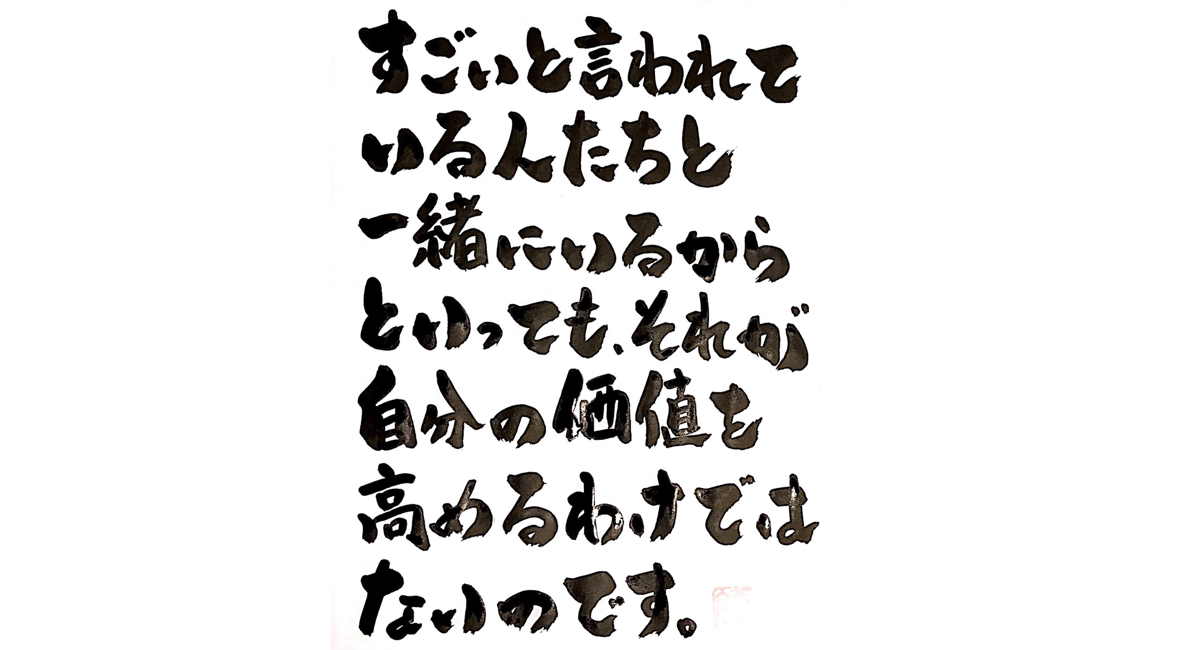 すごいと言われて
いる人たちと
一緒にいるから
といっても、それが
自分の価値を
高めるわけでは
ないのです。